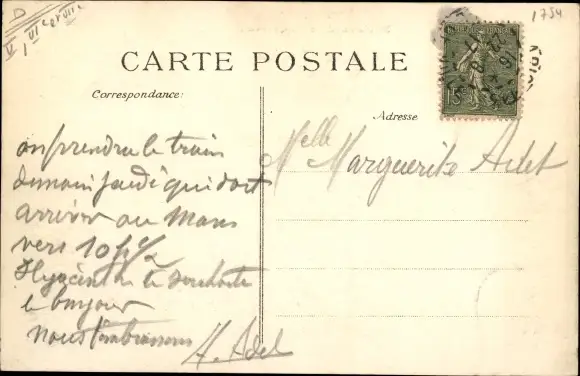 D
V
VI
1754
CARTE POSTALE
Correspondance:
Adresse
15c
on prendra le train
demain jeudi qui doit
arriver au Mans
vers 10h 1/2
Hyacinthe te souhaite
le bonjour
nous t'embrassons
H. Adet
Melle Marguerite Adet